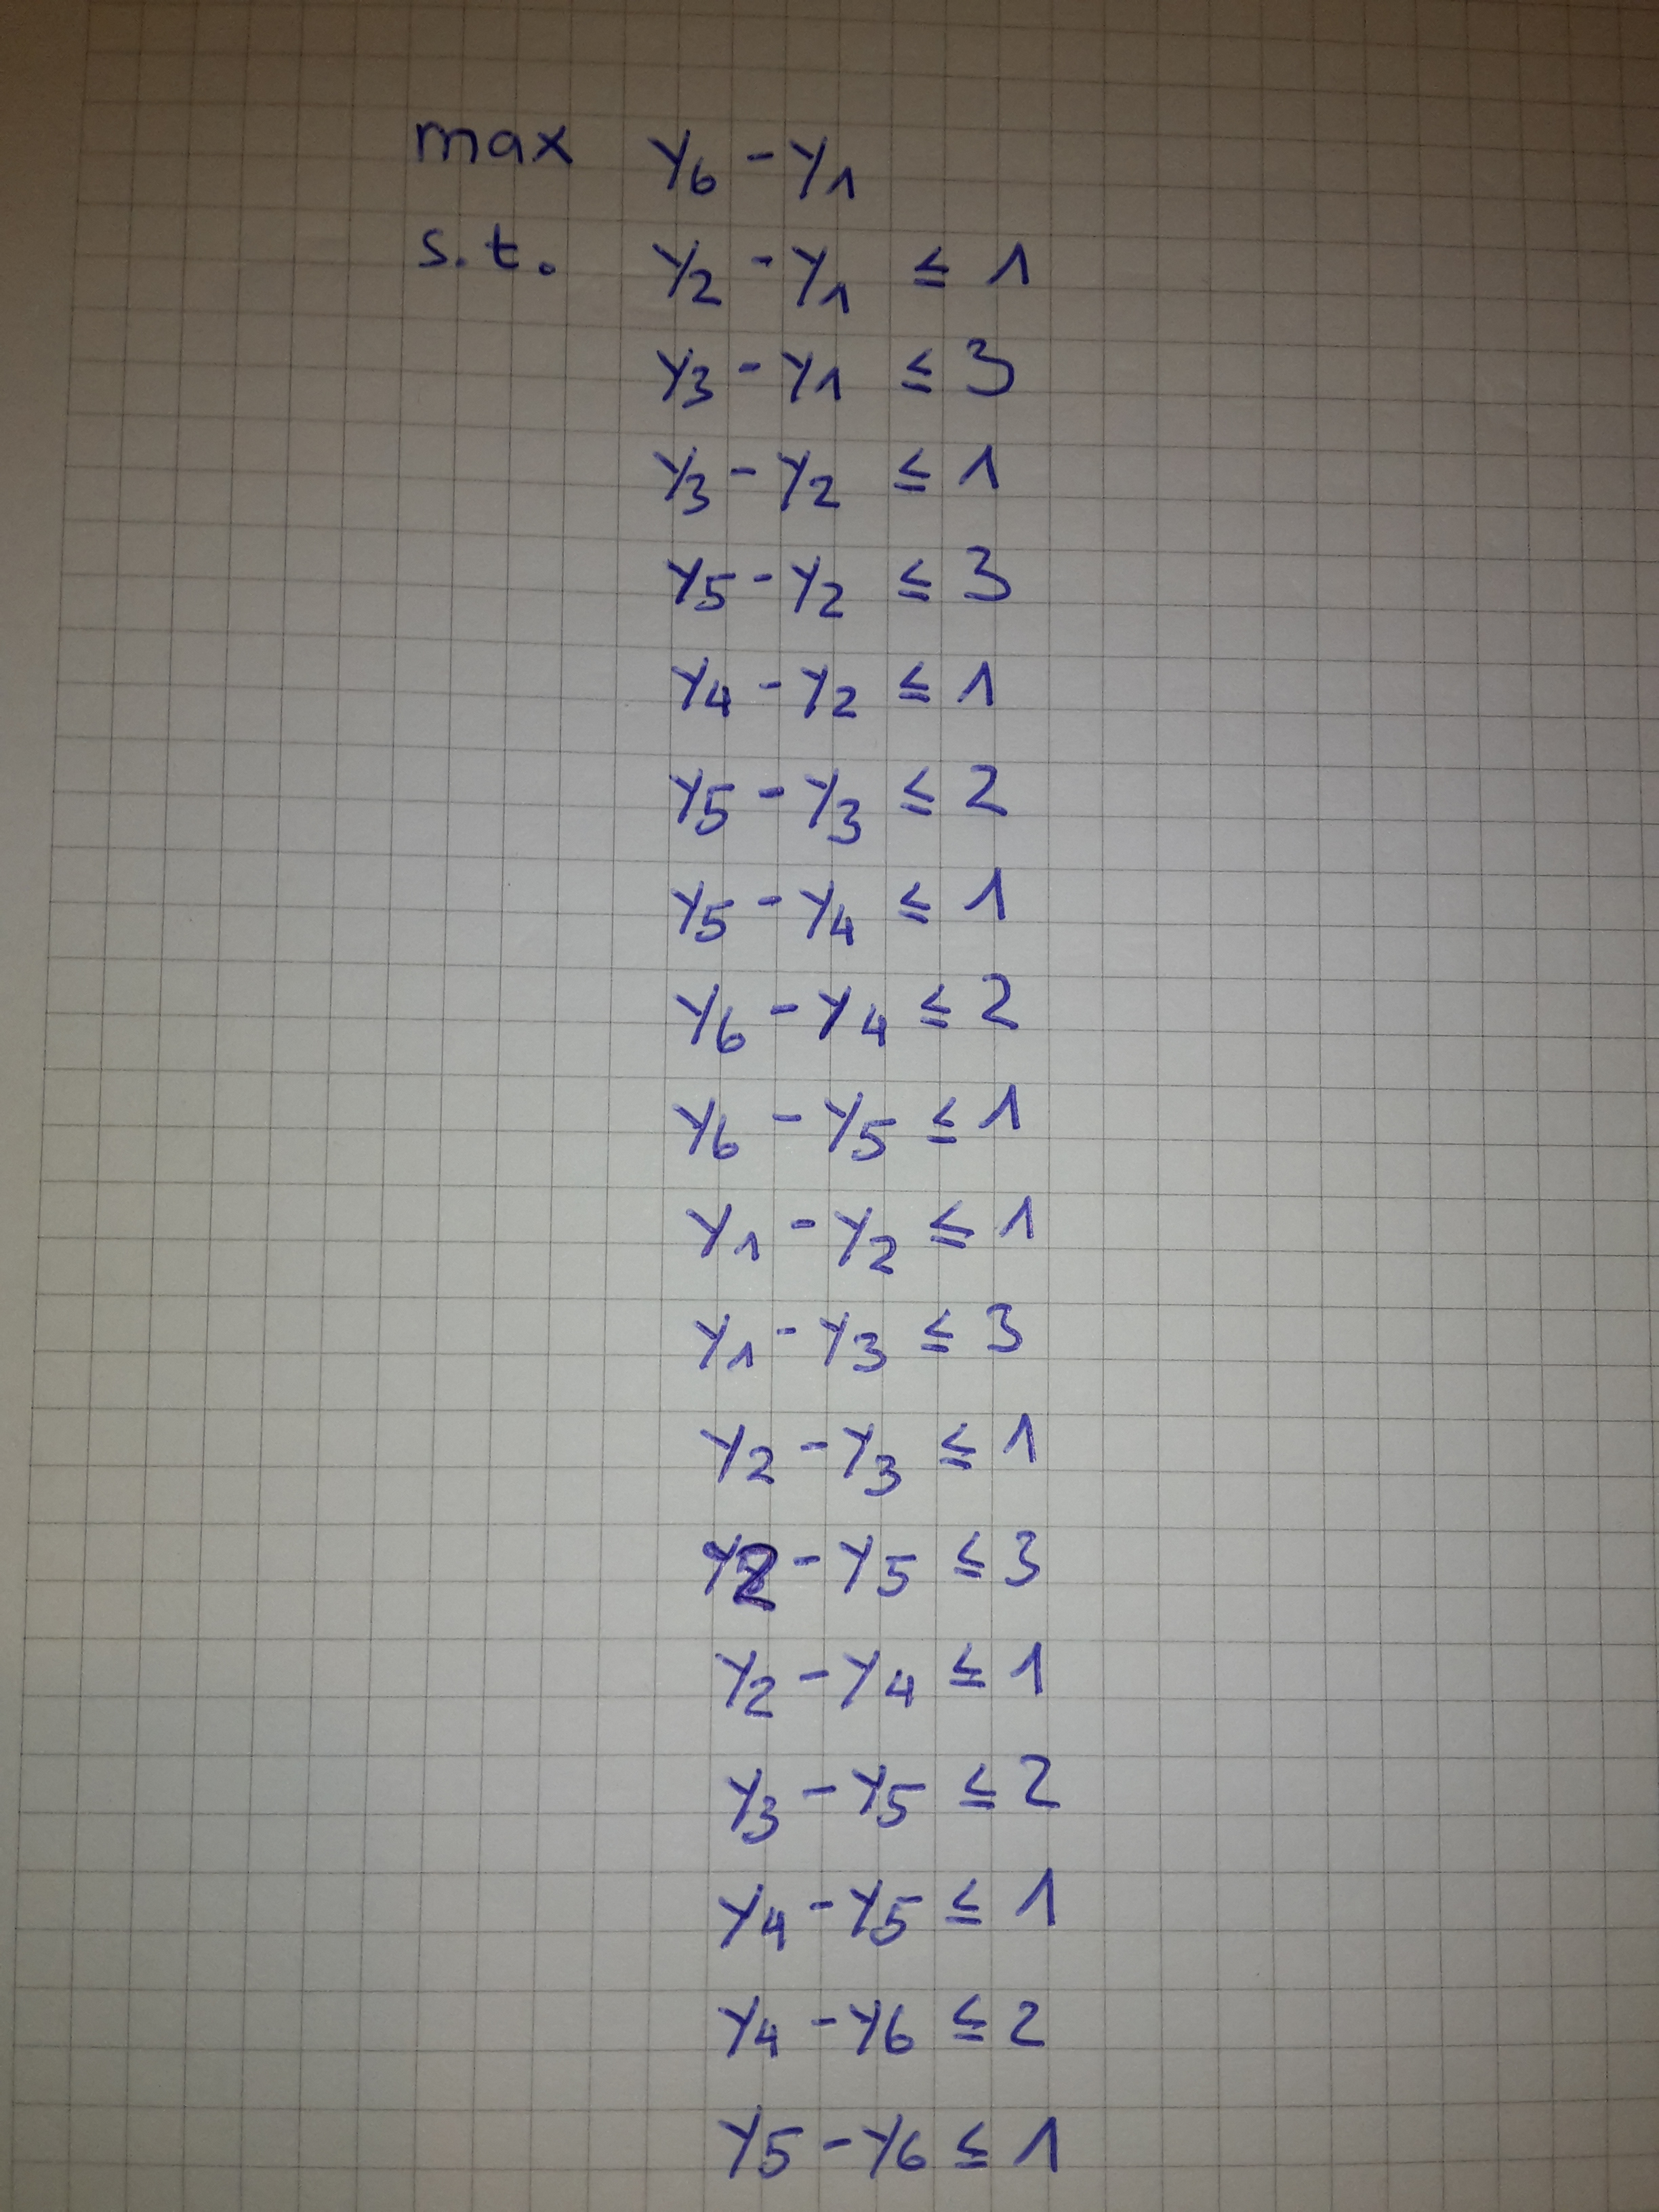 max y₆ - y₁
s.t. y₂ - y₁ ≤ 1
y₃ - y₁ ≤ 3
y₃ - y₂ ≤ 1
y₅ - y₂ ≤ 3
y₄ - y₂ ≤ 1
y₅ - y₃ ≤ 2
y₅ - y₄ ≤ 1
y₆ - y₄ ≤ 2
y₆ - y₅ ≤ 1
y₁ - y₂ ≤ 1
y₁ - y₃ ≤ 3
y₂ - y₃ ≤ 1
y₂ - y₅ ≤ 3
y₂ - y₄ ≤ 1
y₃ - y₅ ≤ 2
y₄ - y₅ ≤ 1
y₄ - y₆ ≤ 2
y₅ - y₆ ≤ 1